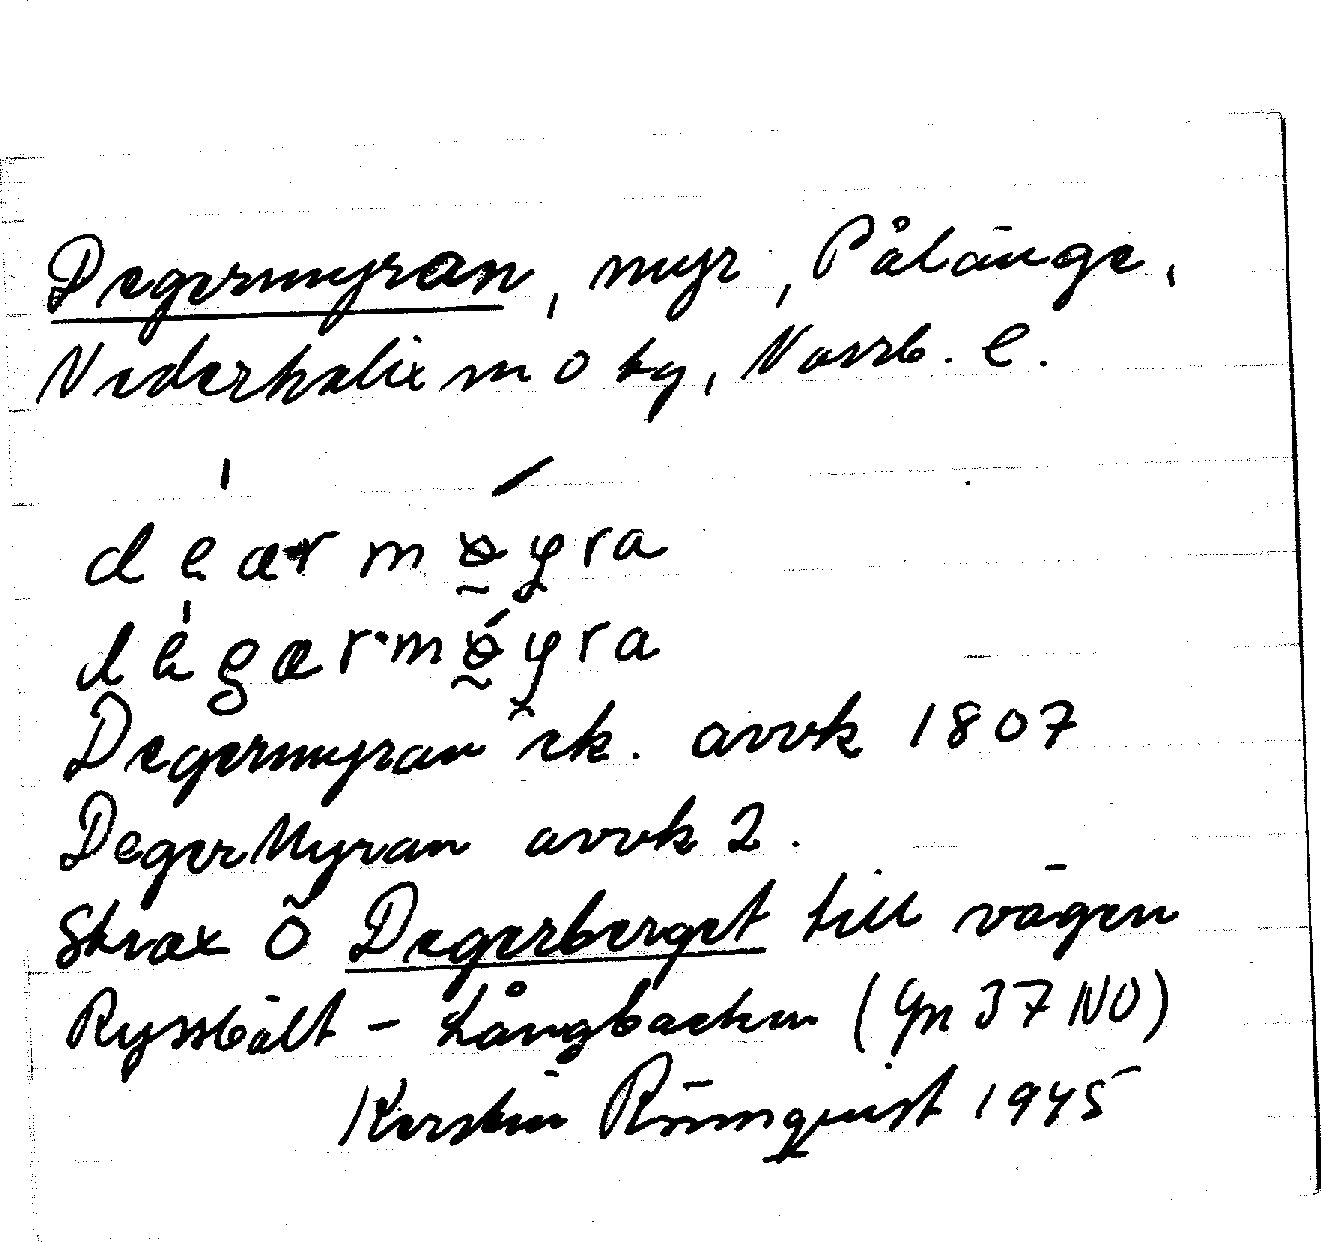 Degermyran, myr, Pålänge,
Nederkalix m o kg, Norrb. l.
dearmøyra
degærmøyra
Degermyran ek. avvk 1807
DegerMyran avvk 2.
Strax Ö Degerberget till vägen
Ryssbält - Långbacken (Gn 37 NO)
Kerstin Rönnquist 1945